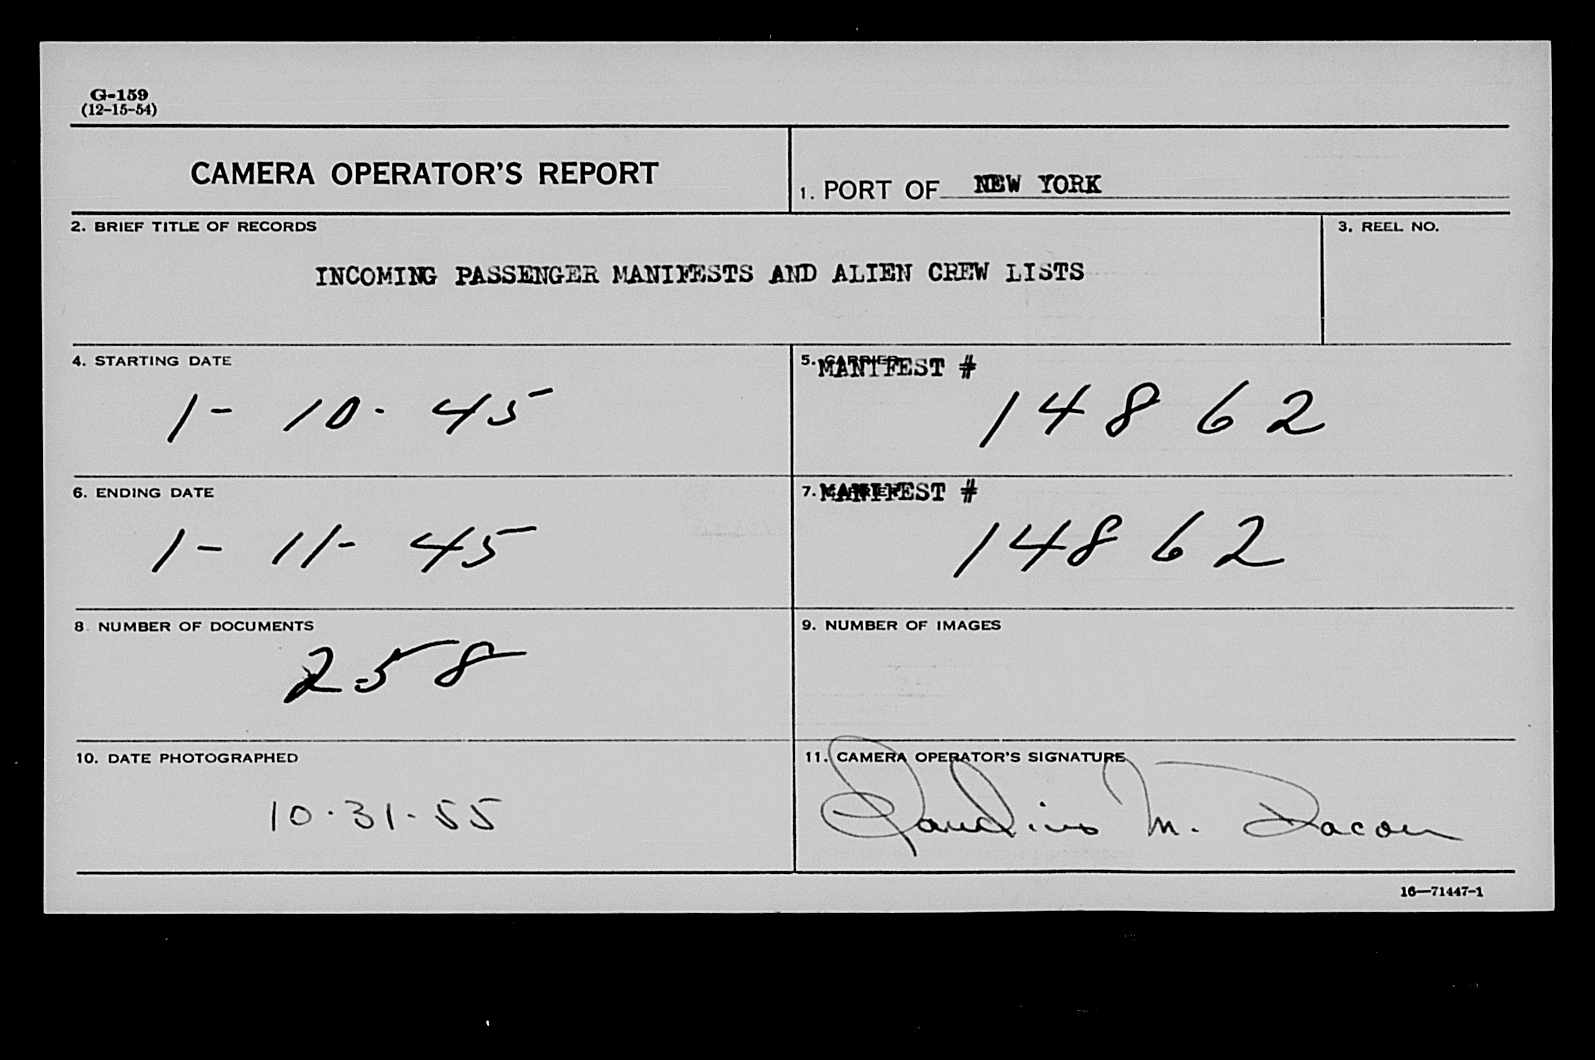 G-159
(12-15-54)
CAMERA OPERATOR'S REPORT
1. PORT OF NEW YORK
2. BRIEF TITLE OF RECORDS
INCOMING PASSENGER MANIFESTS AND ALIEN CREW LISTS
3. REEL NO.
4. STARTING DATE
1-10-45
5. CARRIER
MANIFEST #
14862
6. ENDING DATE
1-11-45
7. CARRIER
MANIFEST #
14862
8. NUMBER OF DOCUMENTS
258
9. NUMBER OF IMAGES
10. DATE PHOTOGRAPHED
10.31.55
11. CAMERA OPERATOR'S SIGNATURE
Claudius M. Dacon
16—71447-1